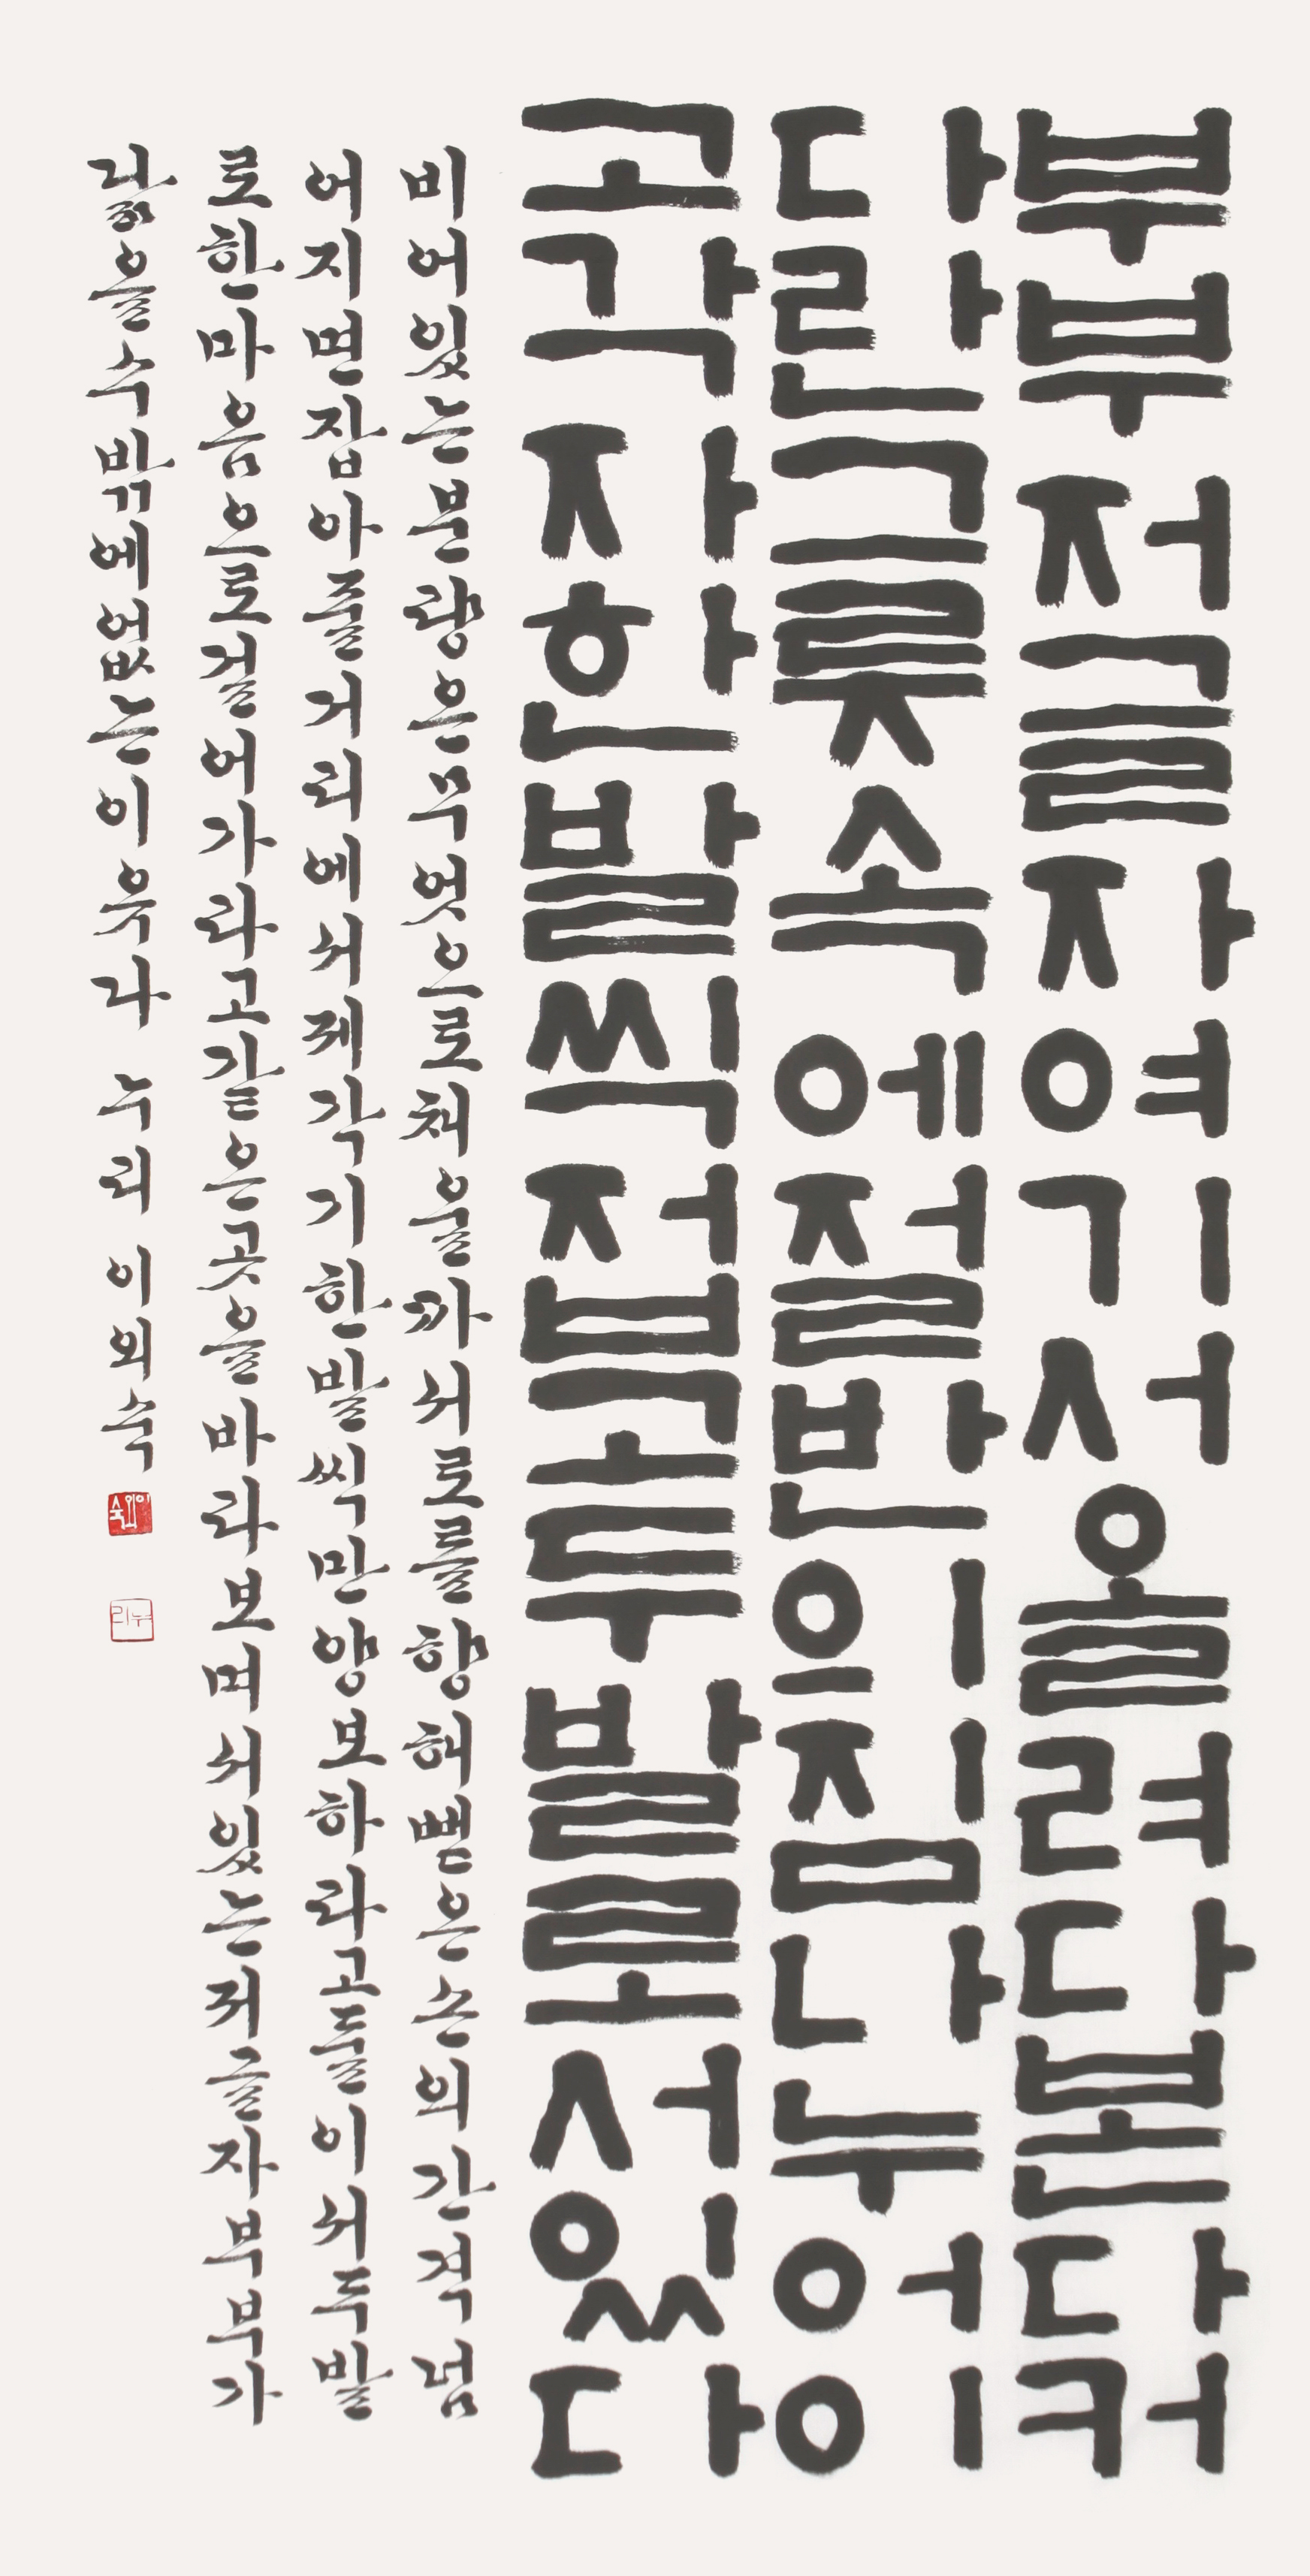 부부저글자여기서올려다본다커
다란그릇속에절반의짐나누어이
고각자한발씩접고두발로서있다
비어있는분량은무엇으로채울까서로를향해뻗은손의간격넘
어지면잡아줄거리에서제각기한발씩만양보하라고둘이서두발
로한마음으로걸어가라고같은곳을바라보며서있는저글자부부가
닮을수밖에없는이유다 누리 이외숙
이외숙
누리